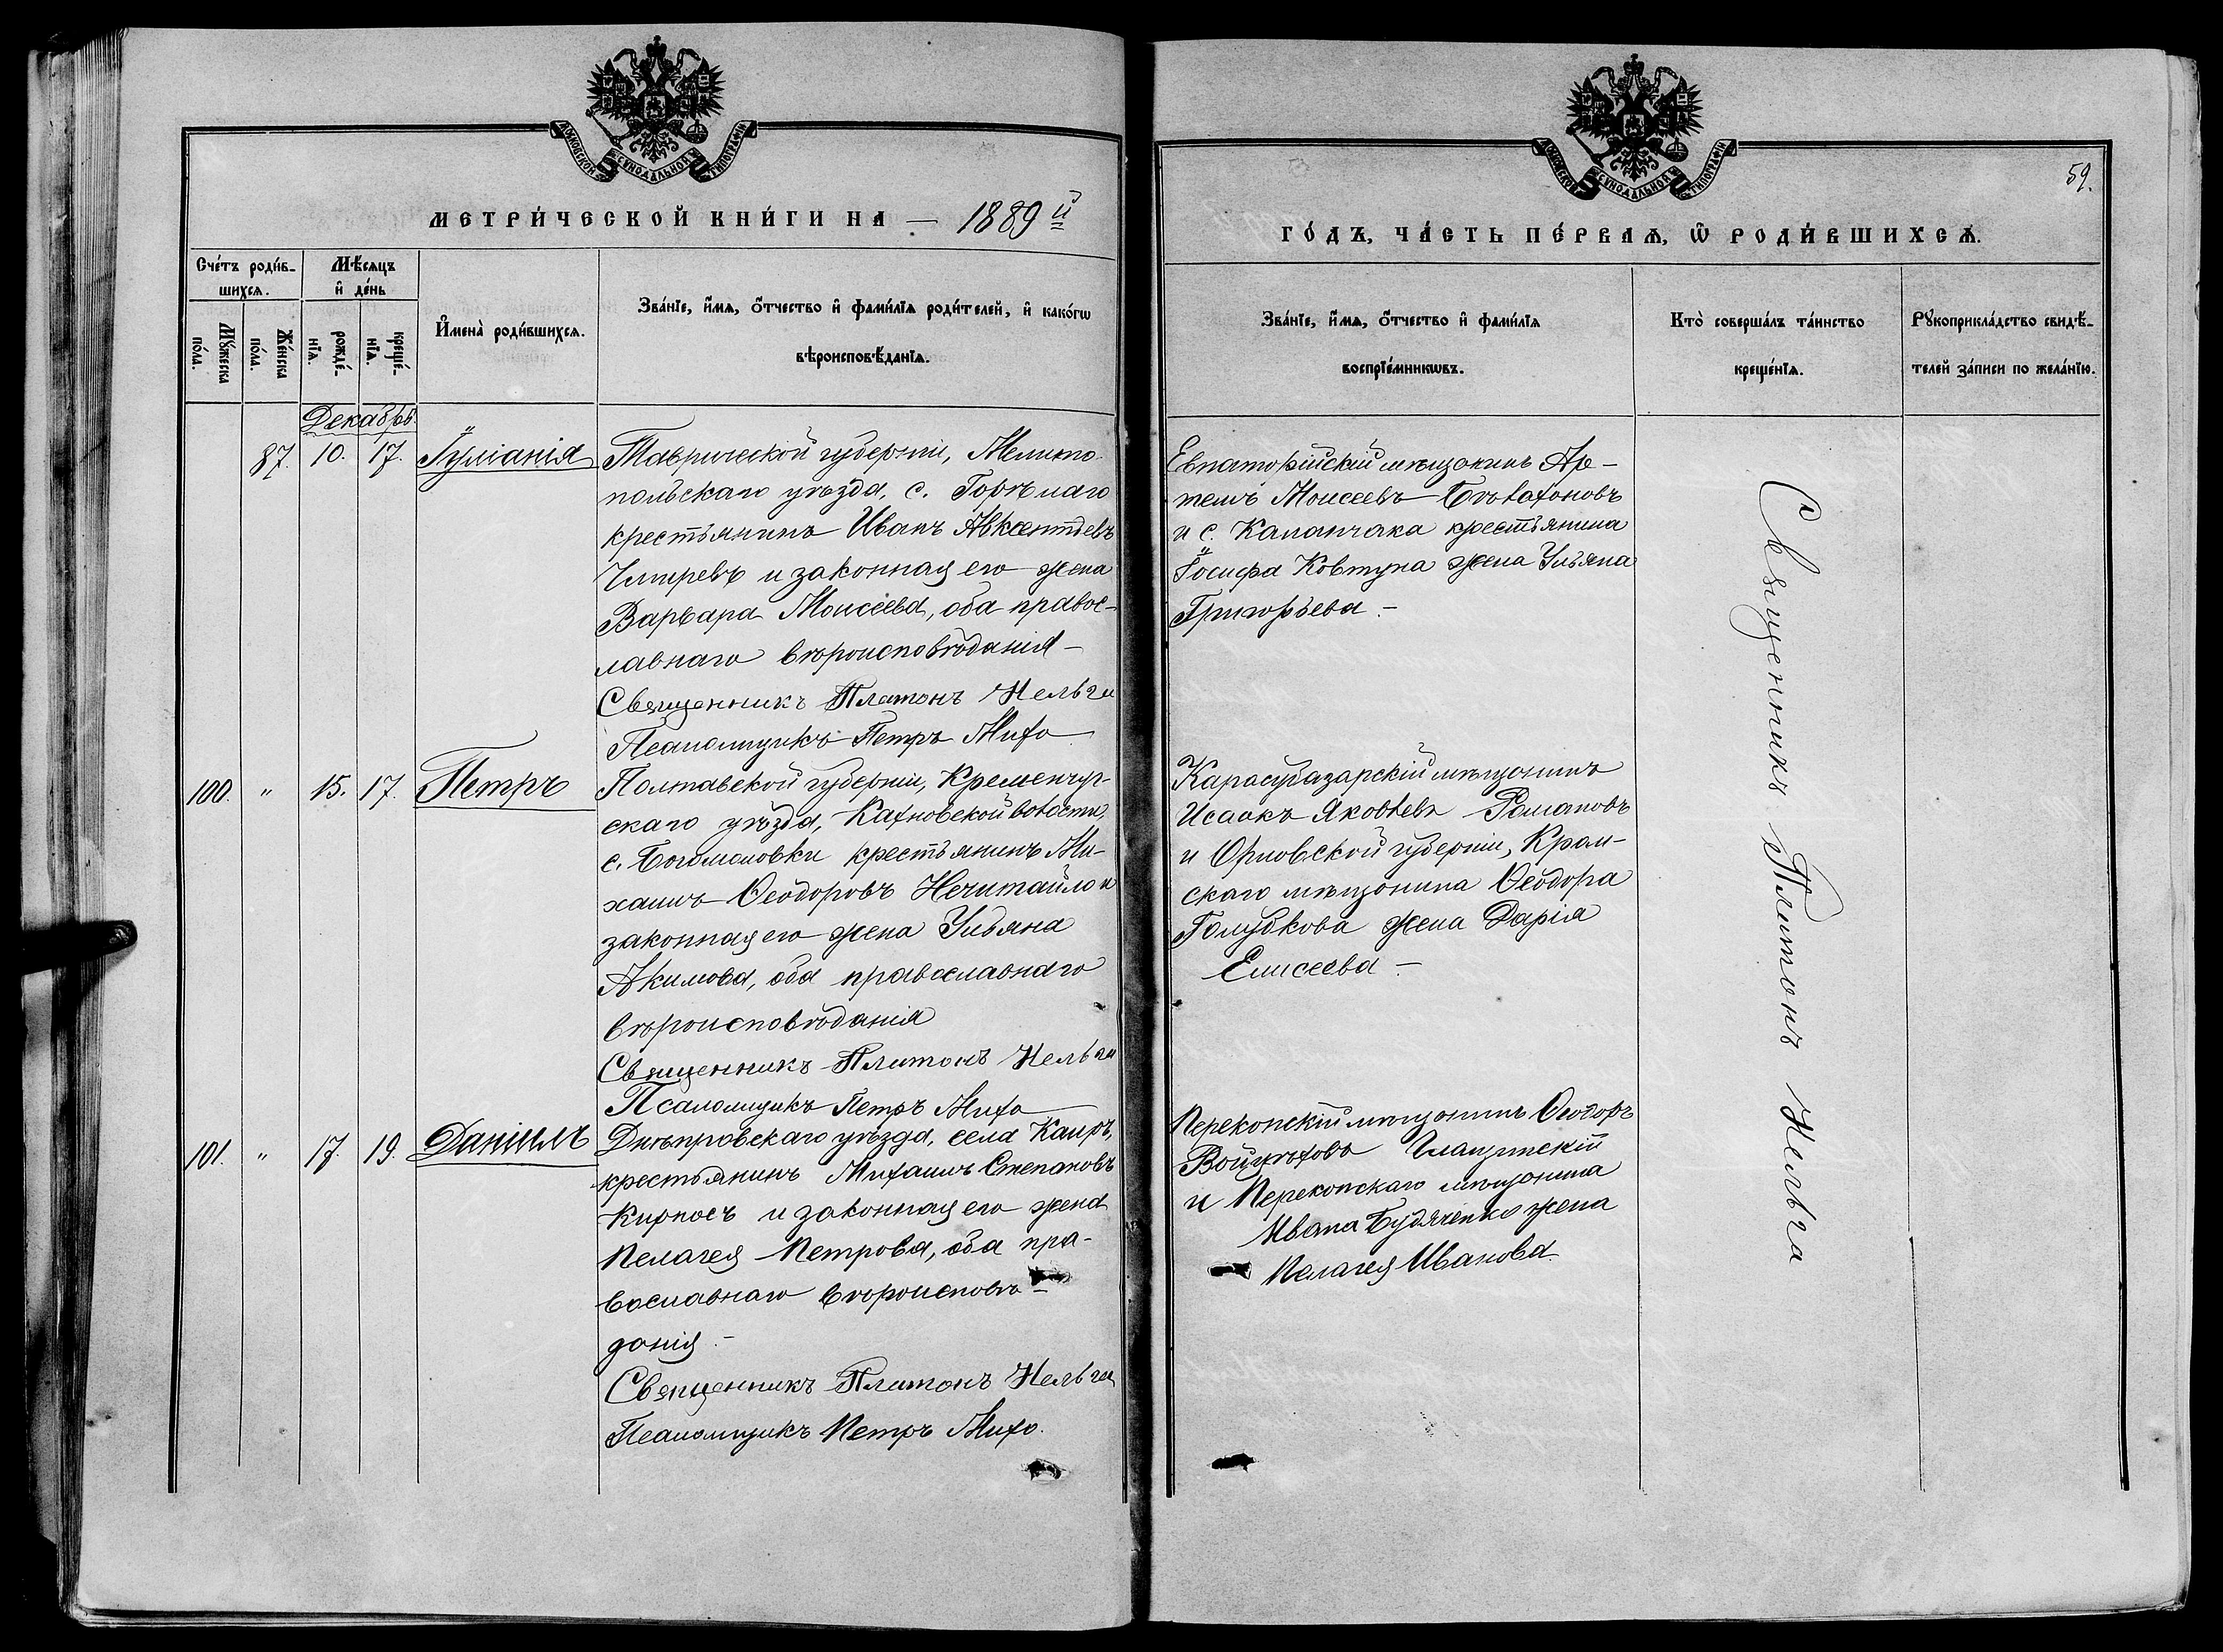 МОСКОВСКОЙ СѴНОДАЛЬНОЙ ТИПОГРАФІИ
МЕТРИ́ЧЕСКОЙ КНИ́ГИ НА — 1889й
Сче́тъ роди́в-
шихсѧ.
Мѣ́сѧцъ
и҆ де́нь
Мꙋ́жеска
по́ла.
Же́нска
по́ла.
рожде́-
нїѧ.
креще́-
нїѧ.
И҆мена̀ роди́вшихсѧ.
Зва́нїе, и҆́мѧ, ѻ҆́тчество и҆ фами́лїѧ роди́телей, и҆ како́гѡ
вѣроисповѣ́данїѧ.
Декабрь
87. 10. 17. Іуліанія
Таврической губерніи, Мелито-
польскаго уѣзда, с. Горѣлаго
крестьянинъ Иванъ Авксентіевъ
и законная его жена
Варвара Моисеева, оба правос-
лавнаго вѣроисповѣданія —
Священникъ Платонъ Нельга
Псаломщикъ Петръ Михо
100. " 15. 17. Петръ
Полтавской губерніи, Кременчуг-
скаго уѣзда, волости,
с. Богомоловки крестьянинъ Ми-
хаилъ Ѳеодоровъ Нечитайло и
законная его жена Ульяна
Акимова, оба православнаго
вѣроисповѣданія
Священникъ Платонъ Нельга
Псаломщикъ Петръ Михо
101. " 17. 19. Даніилъ
Днѣпровскаго уѣзда, села Каиръ,
крестьянинъ Михаилъ Степановъ
Кирпосъ и законная его жена
Пелагея Петрова, оба пра-
вославнаго вѣроисповѣ-
данія. —
Священникъ Платонъ Нельга
Псаломщикъ Петръ Михо.
МОСКОВСКОЙ СѴНОДАЛЬНОЙ ТИПОГРАФІИ
59.
ГО́ДЪ, ЧА́СТЬ ПЕ́РВАѦ, Ѽ РОДИ́ВШИХСѦ.
Зва́нїе, и҆́мѧ, ѻ҆́тчество и҆ фами́лїѧ
воспрїе́мникѡвъ.
Кто̀ соверша́лъ та́инство
креще́нїѧ.
Рꙋкоприкла́дство свидѣ́-
телей за́писи по жела́нїю.
Евпаторійскій мѣщанинъ Ар-
темъ Моисеевъ
и с. Каланчака крестьянина
Іосифа Ковтуна жена Ульяна
Григорьева. —
Карасубазарскій мѣщанинъ
Исаакъ Яковлевъ Романовъ
и Орловской губерніи, Кром-
скаго мѣщанина Ѳеодора
Голубкова жена Дарія
Елисеева —
Перекопскій мѣщанинъ Ѳеодоръ
и Перекопскаго мѣщанина
Ивана жена
Пелагея Иванова.
Священникъ Платонъ Нельга